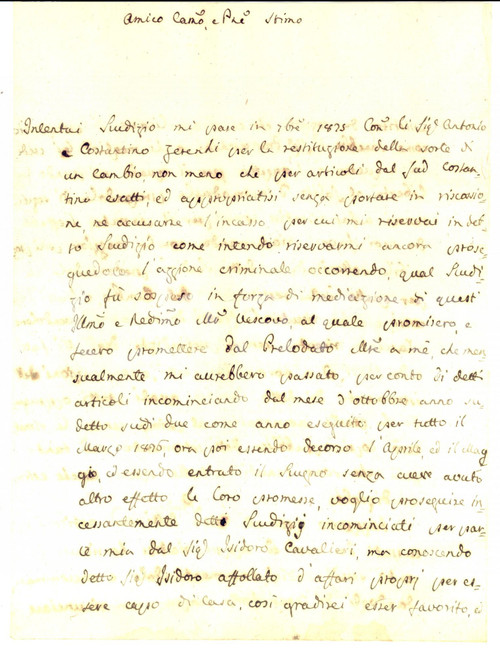 Amico Car.mo, e P.ne Stimo
Intentai Giudizio mi pare in 7bre 1875 Con. li Sig.i Antonio
e Costantino Zerendi per la restituzione della sorte di
un Cambio, non meno che per articoli dal Sud Costan-
tino esatti, ed appropriatisi senza portare in riscossio
ne, ne accusarne l'incasso per cui mi riservai in det
to Giudizio come intendo riservarmi ancora prose-
guedola l'azzione criminale occorrendo, qual Giudi-
zio fù sospeso in forza di mediazione di questi
Illmo e Redimo Mr Vescovo, al quale promisero, e
fecero promettere dal Prelodato Mre a me, che men
sualmente mi avrebbero passato per conto di detti
articoli incominciando dal mese d'ottobbre anno su-
detto sudi due come anno eseguito per tutto il
Marzo 1876, ora poi essendo decorso l'Aprile, ed il Mag
gio, ed essendo entrato il Giugno senza avere avuto
altro effetto le loro promesse, voglio proseguire in-
cessantemente detti Giudizij incominciati per par-
te mia dal Sig. Isidoro Cavalieri, ma conoscendo
detto Sig. Isidoro affollato d'affari proprj per es-
sere capo di Casa, così gradirei esser favorito, e